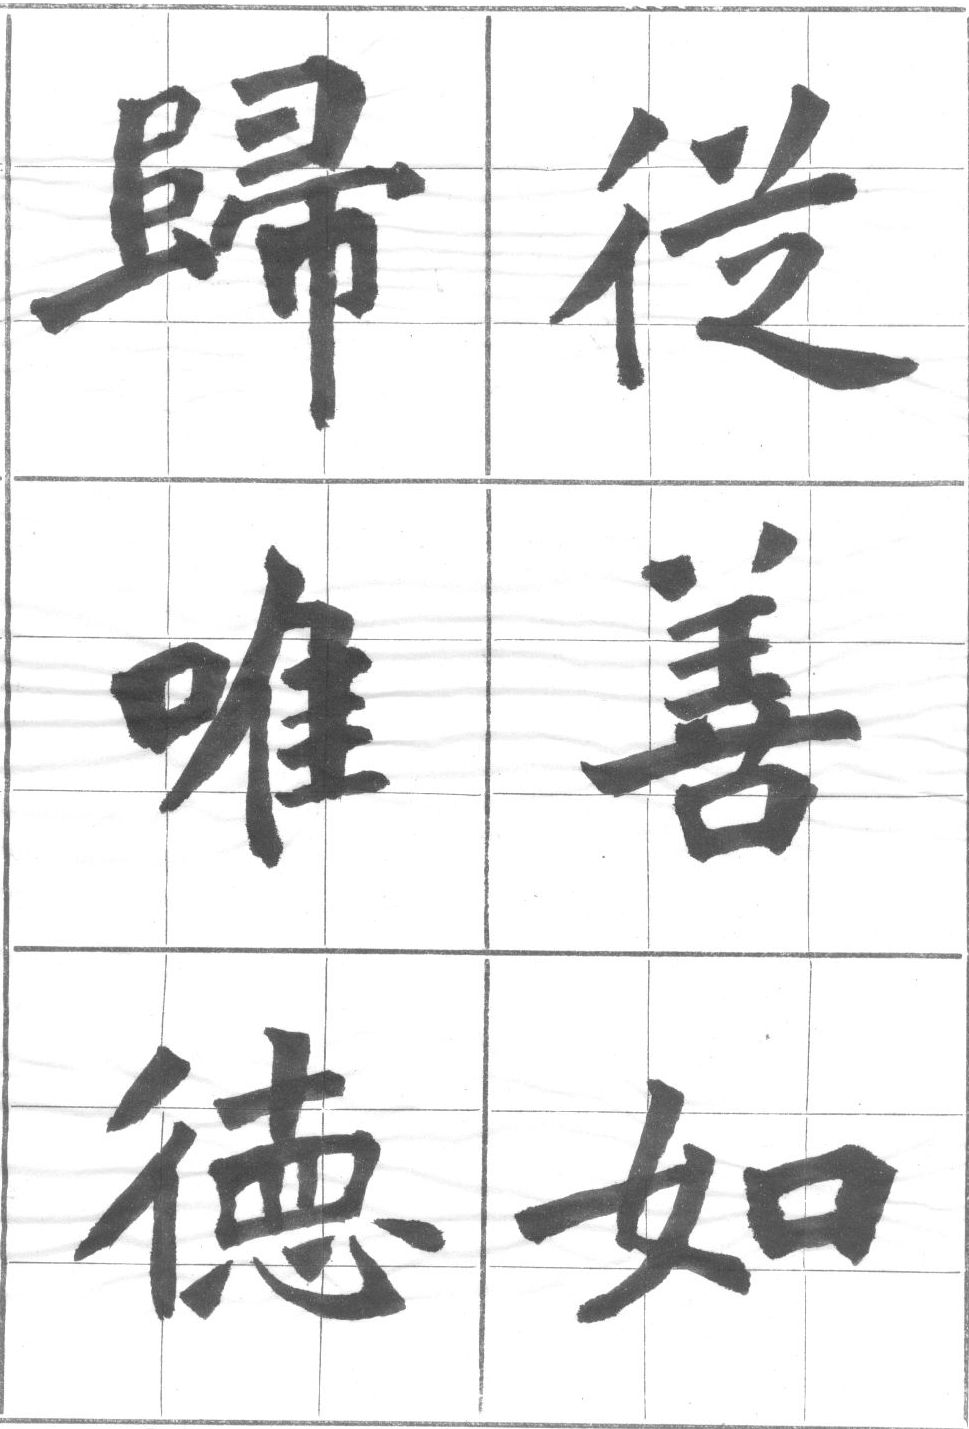 從善如
歸唯德